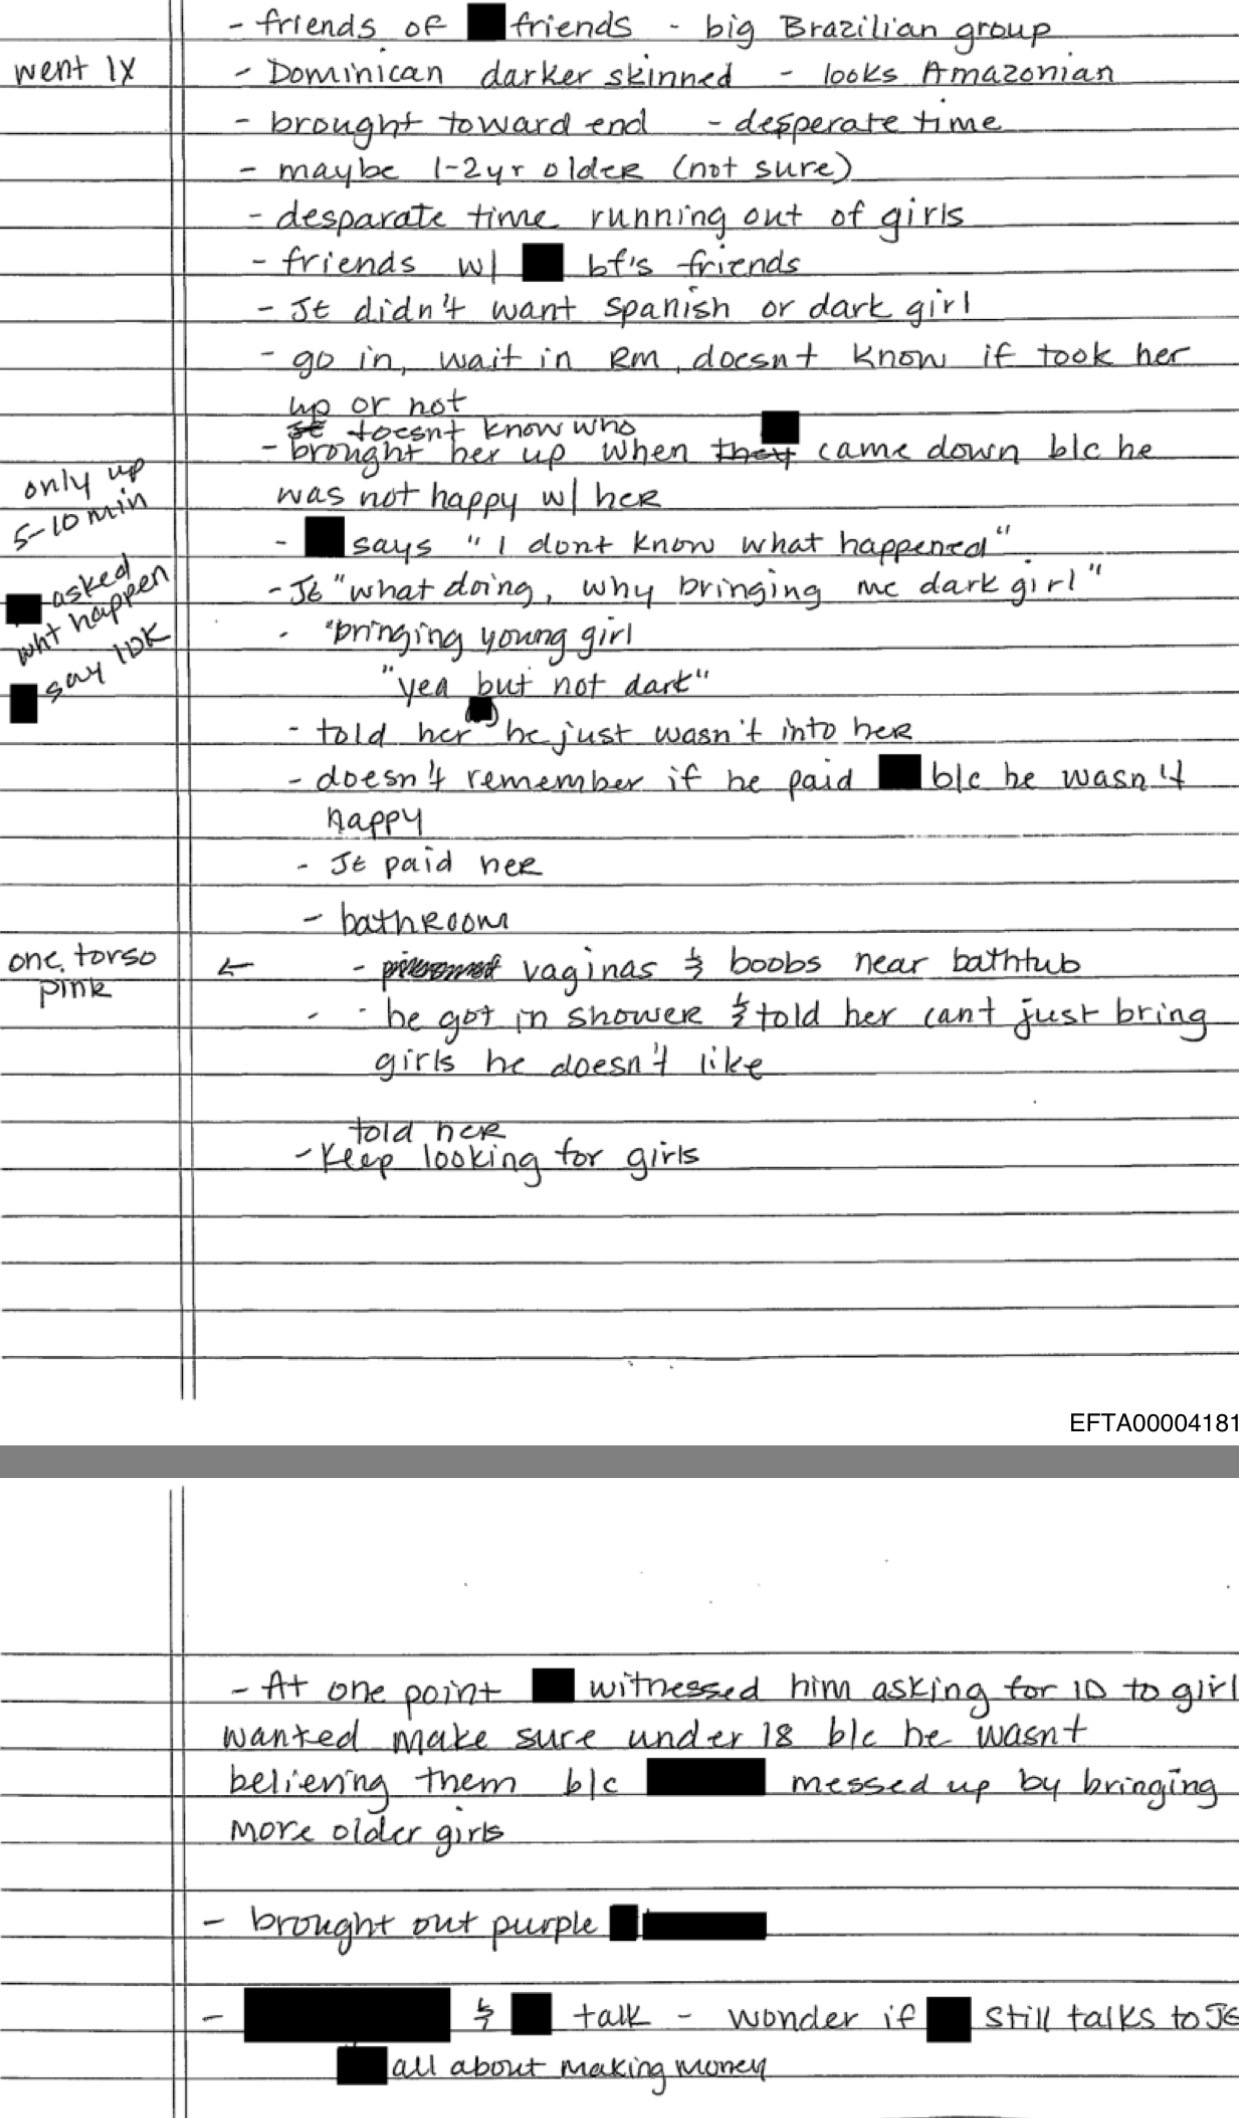 - friends of friends - big Brazilian group
went 1x
- Dominican darker skinned - looks Amazonian
- brought toward end - desperate time
- maybe 1-2yr older (not sure)
- desparate time running out of girls
- friends w/ bf's friends
- JE didn't want spanish or dark girl
- go in, wait in Rm, doesnt know if took her
up or not
doesnt know who
- brought her up when they came down b/c he
was not happy w/ her
only up
5-10 min
- says "I dont know what happened"
asked
wht happen
say IDK
- JE "what doing, why bringing me dark girl"
- "bringing young girl
"yea but not dark"
- told her he just wasn't into her
- doesn't remember if he paid b/c he wasn't
happy
- JE paid her
- bathroom
one torso
pink
← - vaginas & boobs near bathtub
- he got in shower & told her cant just bring
girls he doesn't like
told her
- Keep looking for girls
EFTA00004181
- At one point witnessed him asking for ID to girl
wanted make sure under 18 b/c he wasnt
believing them b/c messed up by bringing
more older girls
- brought out purple
- & talk - wonder if still talks to JE
all about making money